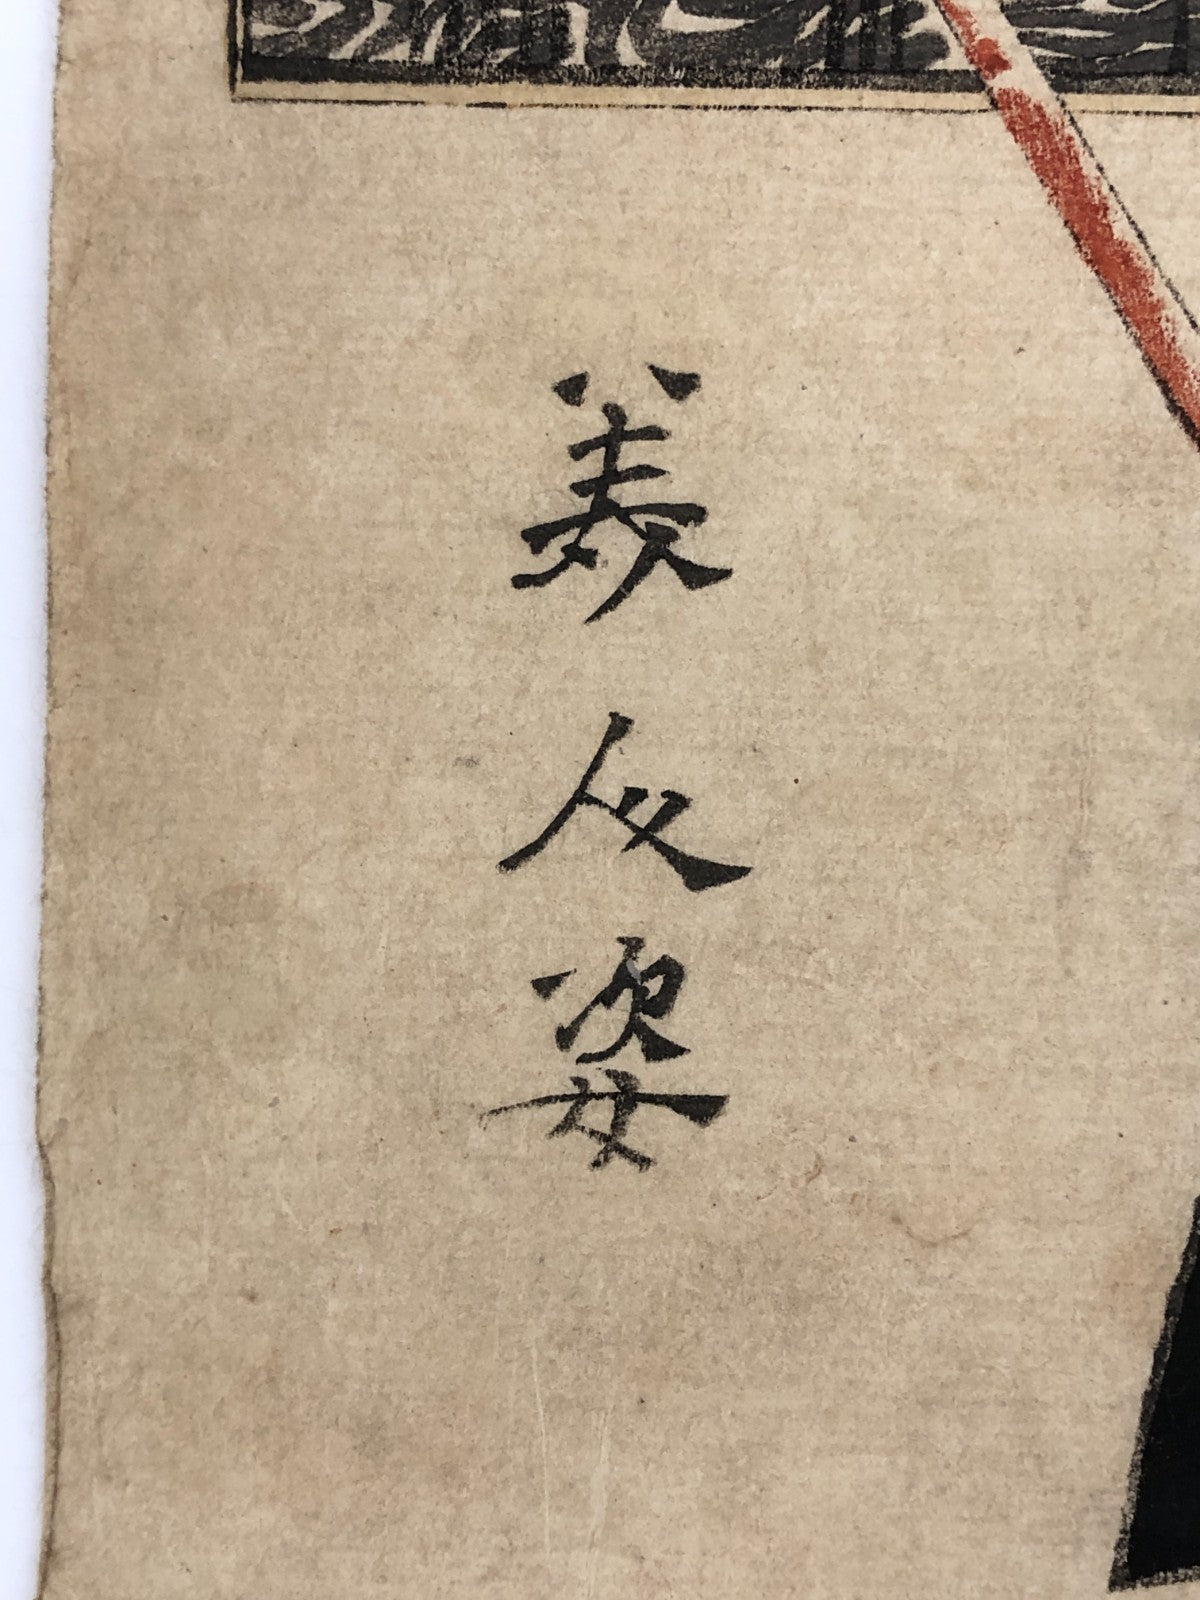 美人姿